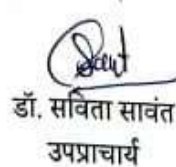 डॉ. सविता सावंत
उपप्राचार्य